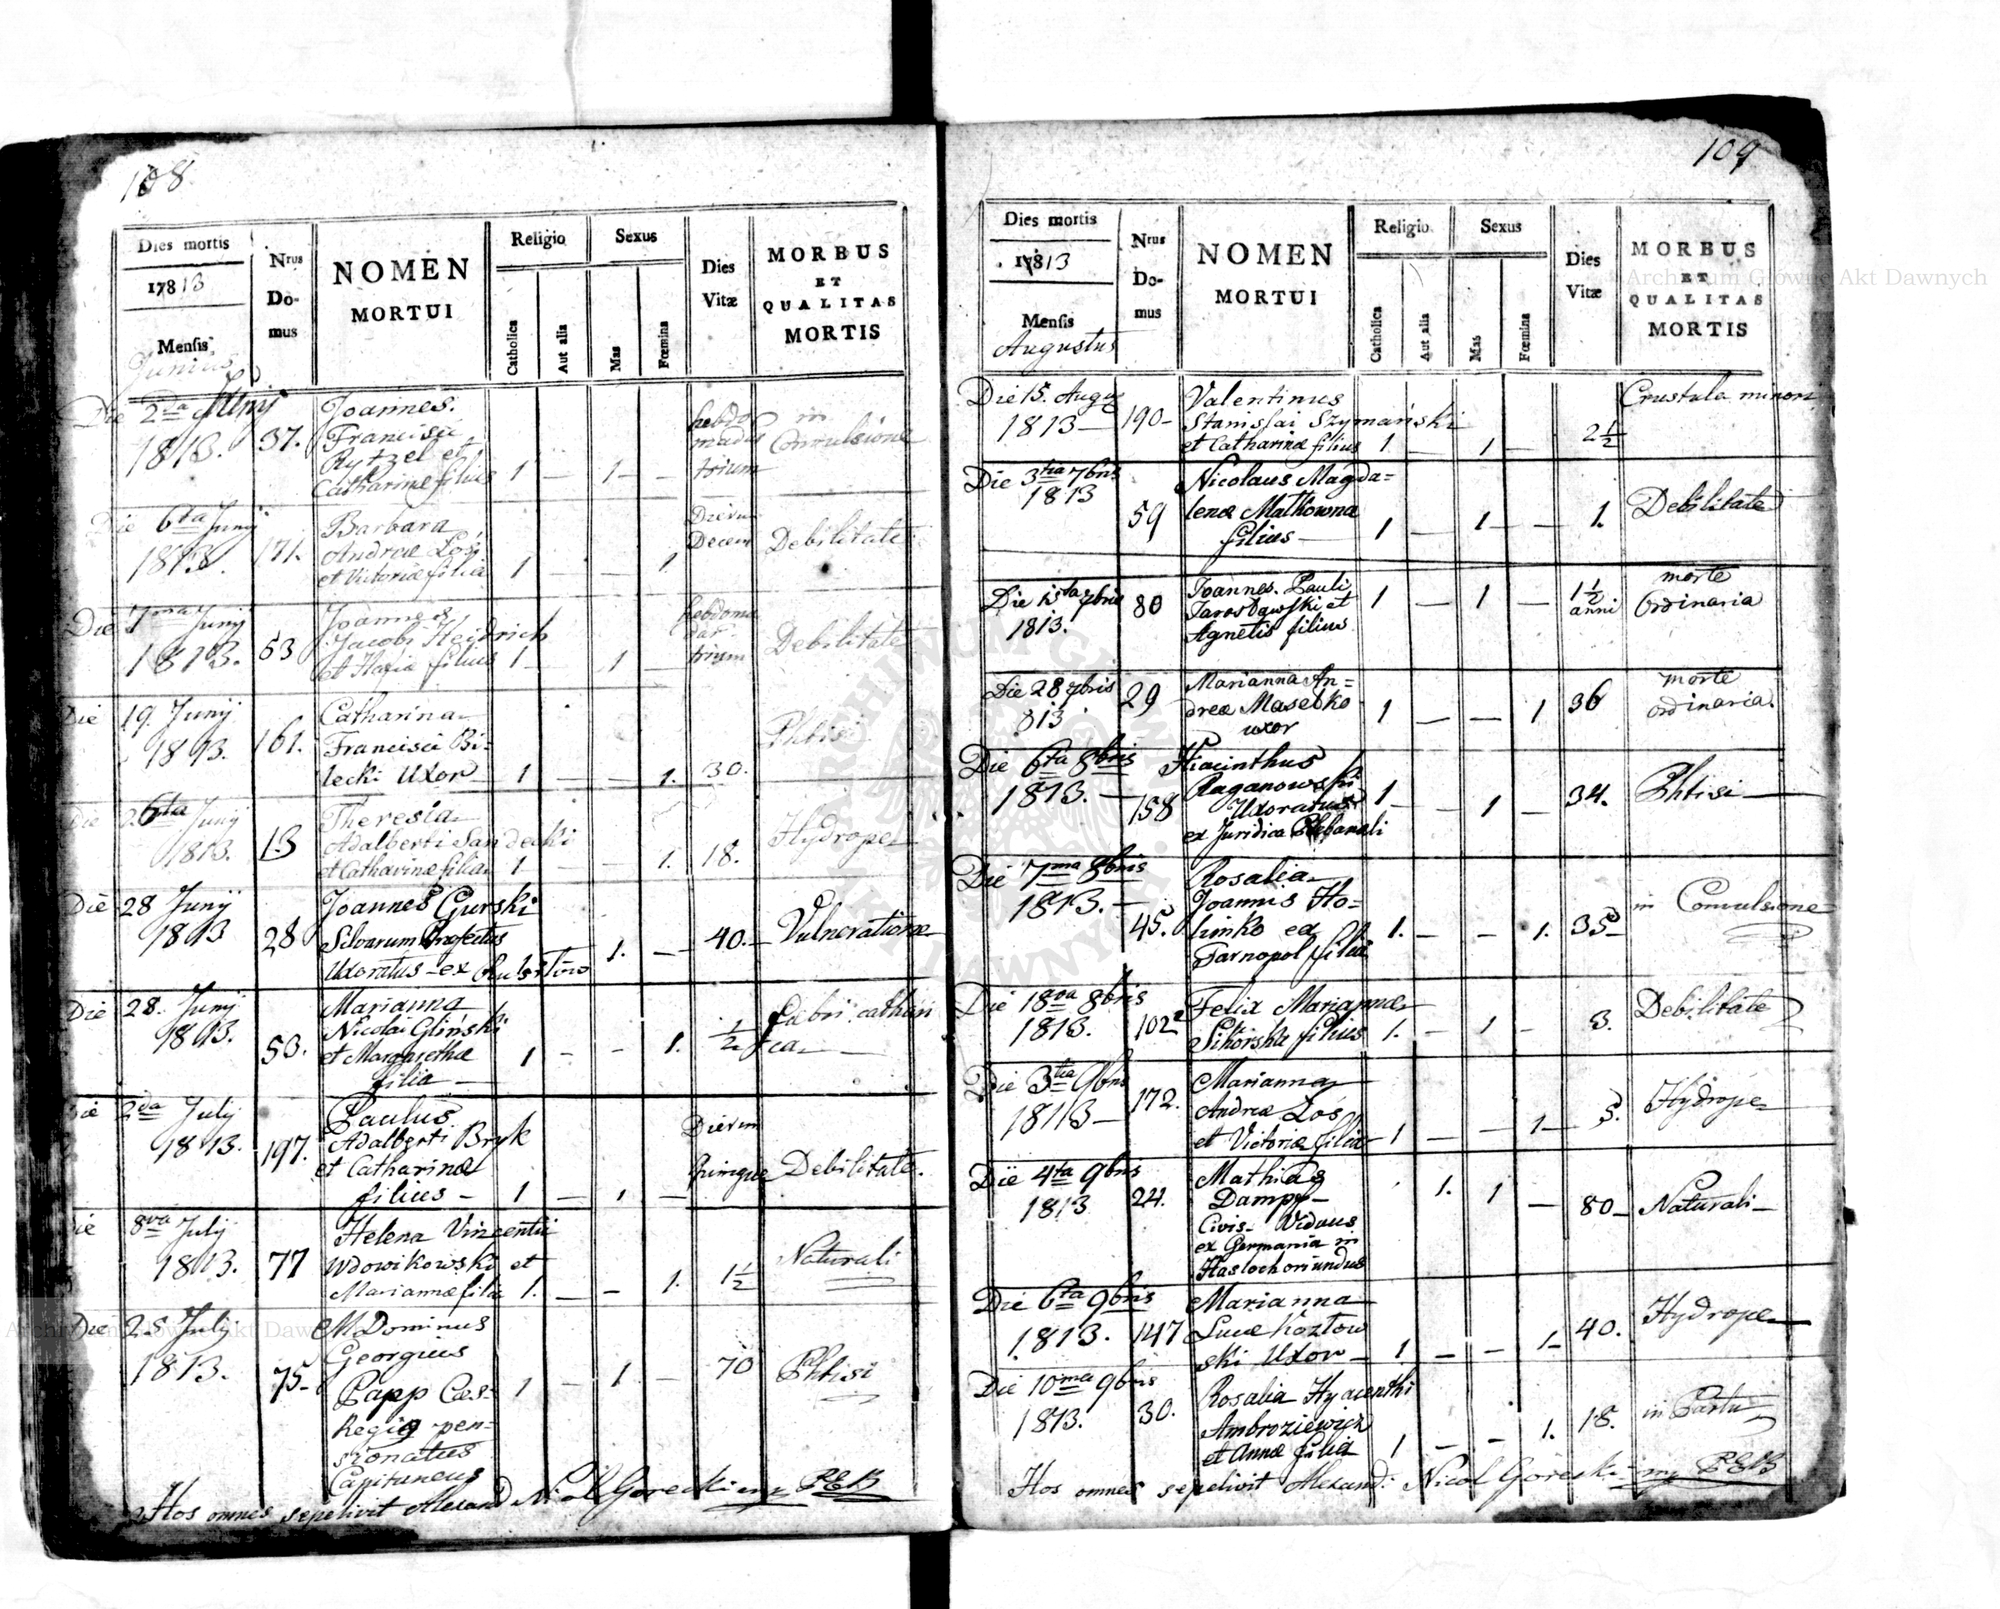 108
Dies mortis
1813
Mensis
Junius
Nrus
Do-
mus
NOMEN
MORTUI
Religio
Catholica
Aut alia
Sexus
Mas
Fœmina
Dies
Vitæ
MORBUS
ET
QUALITAS
MORTIS
Die 2da Junij
1813. 37.
Joannes
Francisci
Rytzel et
Catharinæ filius 1 — 1 —
hebdo
madis
trium
in
Convulsione
Die 6ta Junij
1813. 171.
Barbara
Andreæ Łoś
et Victoriæ filia 1 — — 1.
Dierum
Decem
Debilitate
Die 7ma Junij
1813. 53
Joannes
Jacobi Heidrich
et Mariæ filius 1 — 1 —
hebdoma
dar.
trium
Debilitate
Die 19. Junij
1813. 161.
Catharina
Francisci Bi-
lecki Uxor 1 — — 1. 30.
Phtisi
Die 26ta Junij
1813. 13
Theresia
Adalberti Sandecki
et Catharinæ filia 1 — — 1. 18.
Hydrope
Die 28 Junij
1813 28
Joannes Gurski
Silvarum Præfectus
Uxoratus - ex 1. — 40. —
Vulneratione
Die 28. Junij
1813. 53.
Marianna
Nicolai Gliński
et Margarethæ
filia 1 - - 1. 1/2
Febri cathari
ca
Die 2da July
1813. 197.
Paulus
Adalberti Bryk
et Catharinæ
filius - 1 — 1 —
Dierum
quinque
Debilitate.
Die 8va July
1813. 77
Helena Vincentii
Wdowikowski et
Mariannæ filia 1. — — 1. 1 1/2
Naturali
Die 28 July
1813. 75-
M Dominus
Georgius
Papp Cæs-
Regio pen-
sionatus
Capitaneus
1 — 1 — 70
Phtisi
Hos omnes sepelivit Alexand Nicol Gorecki
109
Dies mortis
1813
Mensis
Augustus
Nrus
Do-
mus
NOMEN
MORTUI
Religio
Catholica
Aut alia
Sexus
Mas
Fœmina
Dies
Vitæ
MORBUS
ET
QUALITAS
MORTIS
Die 15. Aug
1813— 190-
Valentinus
Stanislai Szymański
et Catharinæ filius 1 — 1 — 2 1/2
Crustula minori
Die 3tia 7bris
1813 59
Nicolaus Magda=
lenæ Matkowna
filius — 1 — 1 — 1.
Debilitate
1813. 80
Joannes Pauli
Jarosławski et
Agnetis filius
1 — 1 — 1 1/2
anni
morte
Ordinaria
Die 28 7bris
813 29
Marianna An=
dreæ Maselko
uxor
1 — — 1 36
morte
ordinaria.
Die 6ta 8bris
1813. — 158
Hiacinthus
Raganowski
Uxoratus
ex Juridica Plebanali
1 — 1 — 34.
Phtisi —
Die 7ma 8bris
1813. — 45.
Rosalia
Joannis Ho-
limko ex
Tarnopol filia
1. — — 1. 35
in Convulsione
Die 18va 8bris
1813. 102
Felix Mariannæ
Sikorska filius 1. — 1 — 3.
Debilitate
Die 3tia 9bris
1813— 172.
Marianna
Andreæ Łoś
et Victoriæ filia 1 — — 1 — 5.
Hydrope
Die 4ta 9bris
1813 24.
Mathias
Dampf—
Civis - Viduus
ex Germania in
Hasloch oriundus
1. 1 — 80—
Naturali—
Die 6ta 9bris
1813. 147
Marianna
Lucæ Kozłow
ski Uxor — 1 — — 1- 40.
Hydrope
Die 10ma 9bris
1813. 30.
Rosalia Hyacenthi
Ambroziewicz
et Annæ filia 1 — — 1. 18.
in Partu
Hos omnes sepelivit Alexand: Nicol Gorecki
Archiwum Główne Akt Dawnych
Archiwum Główne Akt Dawnych
ARCHIWUM GŁÓWNE AKT DAWNYCH